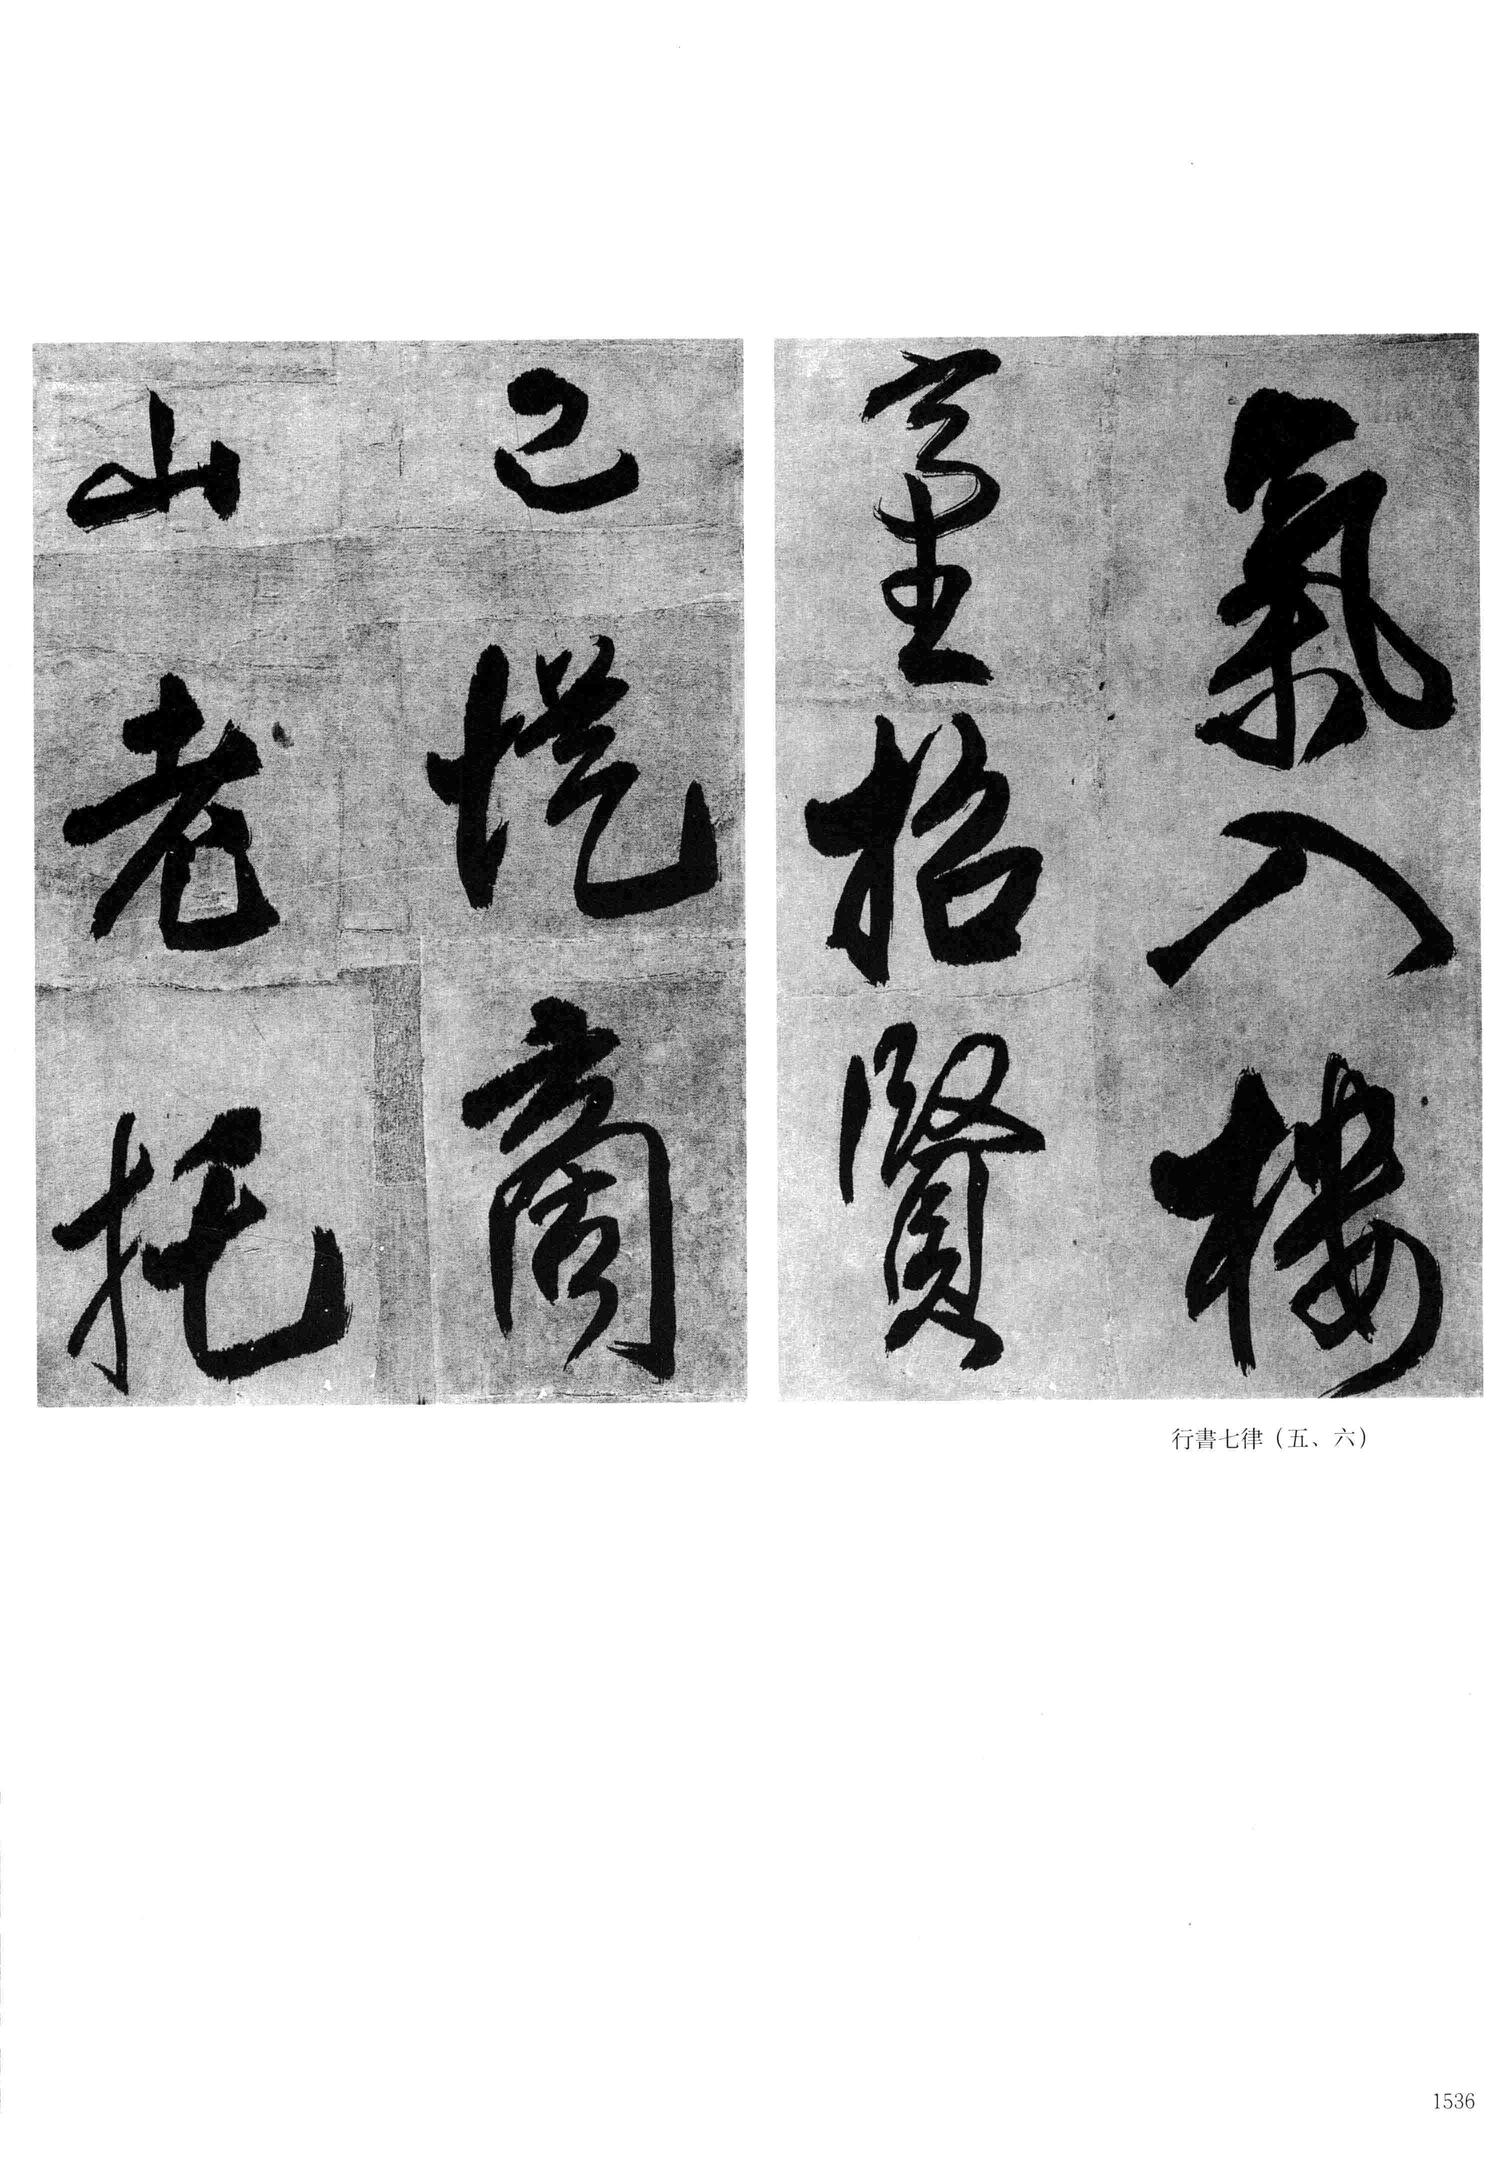 氣入樓
臺招賢
已商
山老托
行書七律（五、六）
1536